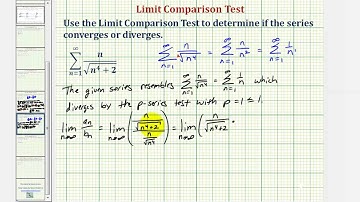 Limit Comparison Test
Use the Limit Comparison Test to determine if the series
converges or diverges.
∑_{n=1}^{∞} n/√(n⁴+2)    ∑_{n=1}^{∞} n/√(n⁴) = ∑_{n=1}^{∞} n/n² = ∑_{n=1}^{∞} 1/n¹
The given series resembles ∑_{n=1}^{∞} n/√(n⁴) = ∑_{n=1}^{∞} 1/n which
diverges by the p-series test with p = 1 ≤ 1.
lim_{n→∞} aₙ/bₙ = lim_{n→∞} ( (n/√(n⁴+2)) / (n/√(n⁴)) ) = lim_{n→∞} ( n/√(n⁴+2) ·